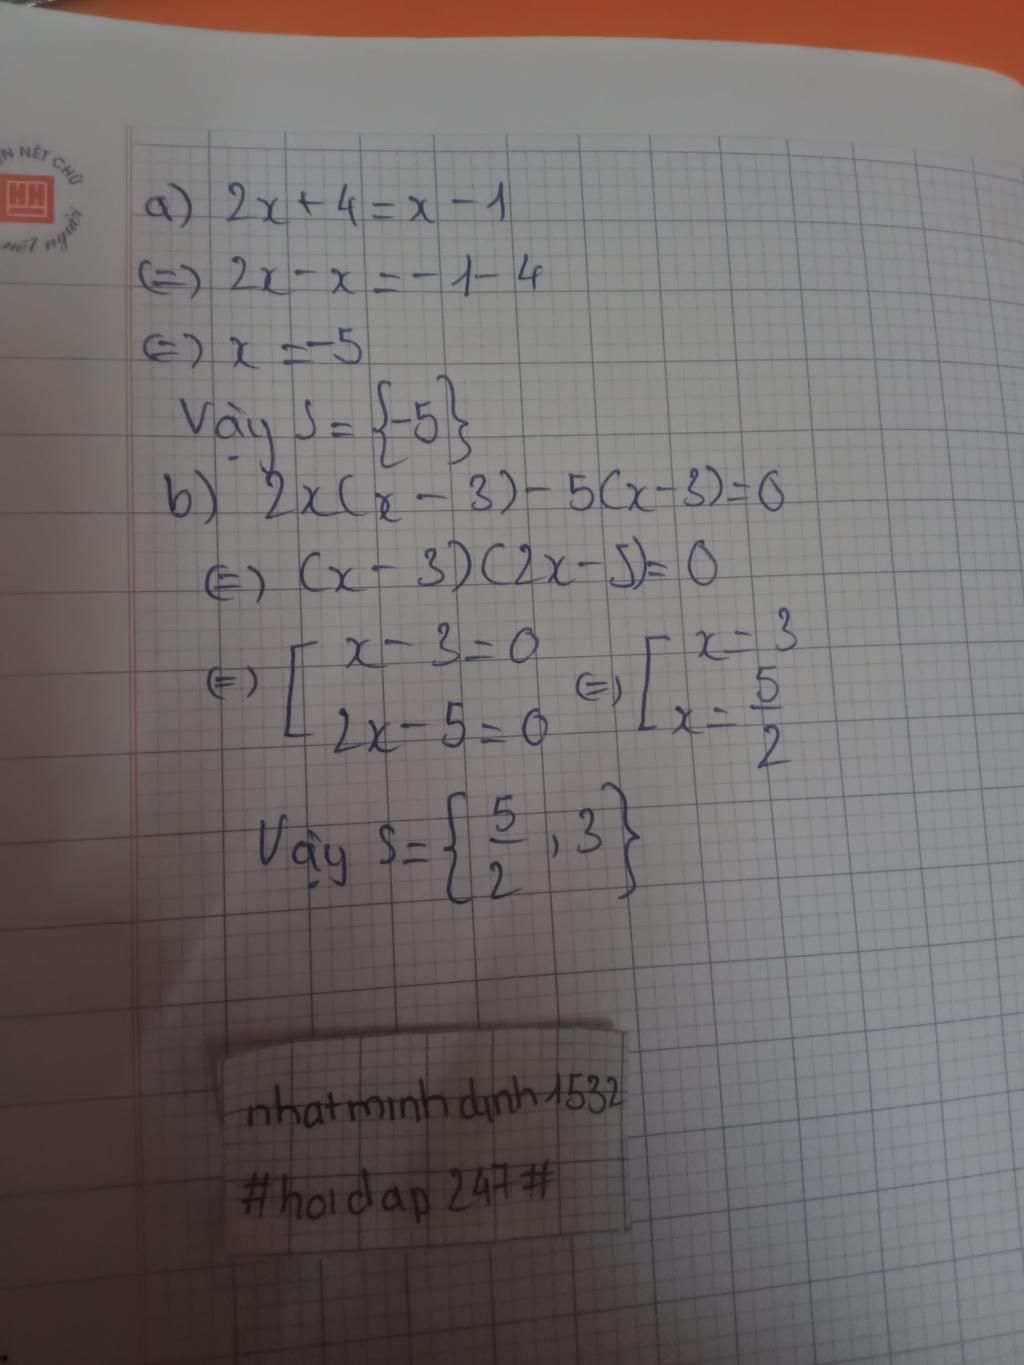 N NÉT CHỮ
HH
nết người
a) 2x + 4 = x - 1
(=) 2x - x = -1 - 4
(=) x = -5
Vậy S = {-5}
b) 2x(x - 3) - 5(x - 3) = 0
(=) (x - 3)(2x - 5) = 0
(=) [ x - 3 = 0 (=) [ x = 3
2x - 5 = 0 x = 5/2
Vậy S = { 5/2 , 3 }
nhatminhdinh1532
#hoidap247#